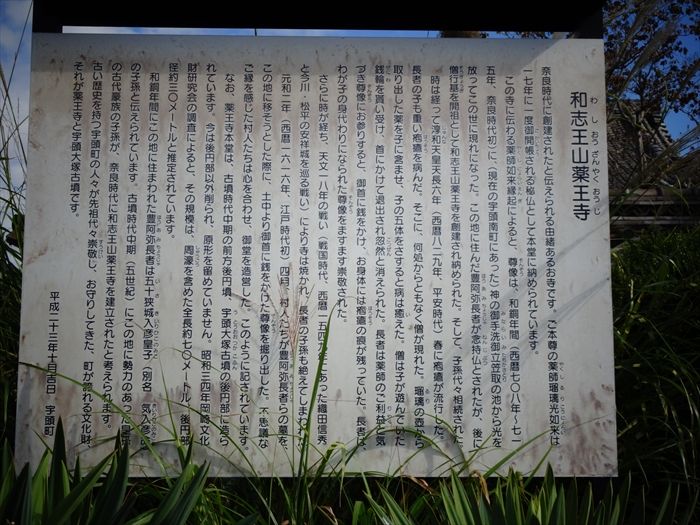 わしおうざんやくおうじ
和志王山薬王寺
奈良時代に創建されたと伝えられる由緒あるお寺です。ご本尊の薬師瑠璃光如来は
十七年に一度御開帳される秘仏として本堂に納められています。
この寺に伝わる薬師如来縁起によると、尊像は、和銅年間(西暦七〇八年〜七一
五年、奈良時代初)に、(現在の宇頭南町にあった)神の御手洗御立笠取の池から光を
放ってこの世に現れになった。この地に住んだ豊阿弥長者が念持仏とされたが、後に
僧行基を開祖として和志王山薬王寺を創建され納められた。そして、子孫代々相続された。
時は経って淳和天皇天長六年(西暦八二九年、平安時代)春に疱瘡が流行した。
長者の子も重い疱瘡を病んだ。そこに、何処からともなく僧が現れた。瑠璃の壺から
取り出した薬を子に含ませ、子の五体をさすると病は癒えた。僧は子が遊んでいた
銭輪を貰い受け、首にかけて退出され忽然と消えられた。長者は薬師のご利益と気
づき尊像にお参りすると、御首に銭をかけ、お身体には疱瘡の痕が残っていた。長者は、
わが子の身代わりになられた尊像をますます崇敬された。
さらに時が経ち、天文一八年の戦い(戦国時代、西暦一五四九年にあった織田信秀
と今川・松平の安祥城を巡る戦い)により寺は焼かれ、長者の子孫も絶えていまった。
元和二年(西暦一六一六年、江戸時代初)四月、村人たちが豊阿弥長者らの墓を、
この地に移そうとした際に、土中より御首に銭をかけた尊像を掘り出した。不思議な
ご縁を感じた村人たちは心を合わせ、御堂を造営した。このように記されています。
なお、薬王寺本堂は、古墳時代中期の前方後円墳 宇頭大塚古墳の後円部に造ら
れています。今は後円部以外削られ、原形を留めていません。昭和三四年岡崎文化
財研究会の調査によると、その規模は、周濠を含めた全長約七〇メートル、後円部
径約三〇メートルと推定されています。
和銅年間にこの地に住まわれた豊阿弥長者は五十狭城入彦皇子(別名 気入彦)
の子孫と伝えられています。古墳時代中期(五世紀)にこの地に勢力のあった
の古代豪族の子孫が、奈良時代に和志王山薬王寺を建立されたと考えられます。
古い歴史を持つ宇頭町の人々が先祖代々崇敬し、お守りしてきた、町が誇れる文化財、
それが薬王寺と宇頭大塚古墳です。
平成二十三年十月吉日 宇頭町